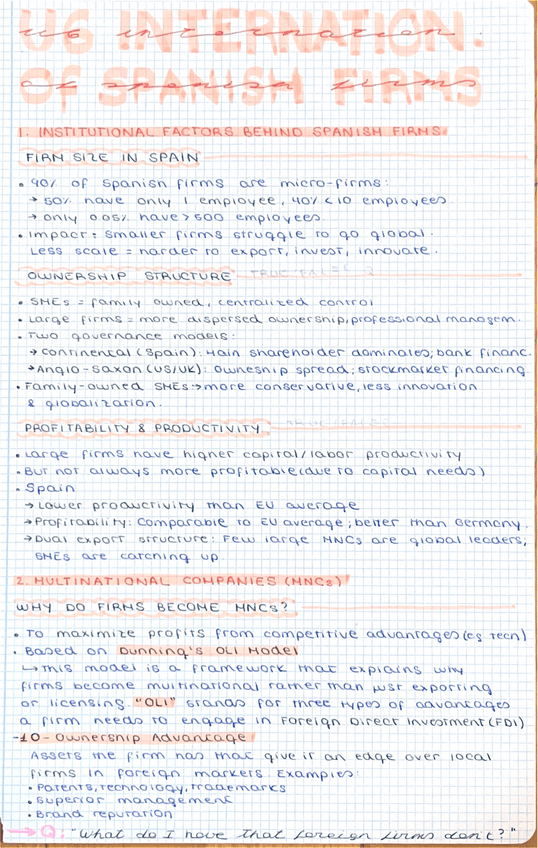 U6 INTERNATION.
OF SPANISH FIRMS
1. INSTITUTIONAL FACTORS BEHIND SPANISH FIRMS
FIRM SIZE IN SPAIN
• 90% of Spanish firms are micro-firms:
→ 50% have only 1 employee, 40% < 10 employees
→ only 0.05% have > 500 employees.
• Impact: Smaller firms struggle to go global.
Less scale = harder to export, invest, innovate.
OWNERSHIP STRUCTURE
• SMEs = family owned, centralized control
• Large firms = more dispersed ownership, professional managem.
• Two governance models:
→ Continental (Spain): Main shareholder dominates; bank financ.
→ Anglo-Saxon (US/UK): Ownership spread; stockmarket financing
• Family-owned SMEs → more conservative, less innovation
& globalization.
PROFITABILITY & PRODUCTIVITY
• Large firms have higher capital/labor productivity
• But not always more profitable (due to capital needs)
• Spain
→ Lower productivity than EU average
→ Profitability: Comparable to EU average; better than Germany.
→ Dual export structure: Few large MNCs are global leaders;
SMEs are catching up.
2. MULTINATIONAL COMPANIES (MNCs)
WHY DO FIRMS BECOME MNCs?
• To maximize profits from competitive advantages (eg tech)
• Based on Dunning's OLI Model
↳ This model is a framework that explains why
firms become multinational rather than just exporting
or licensing. "OLI" stands for three types of advantages
a firm needs to engage in Foreign Direct Investment (FDI)
-1O- Ownership Advantage
Assets the firm has that give it an edge over local
firms in foreign markers. Examples:
• Patents, technology, trademarks
• Superior management
• Brand reputation
→ Q: "What do I have that foreign firms don't?"